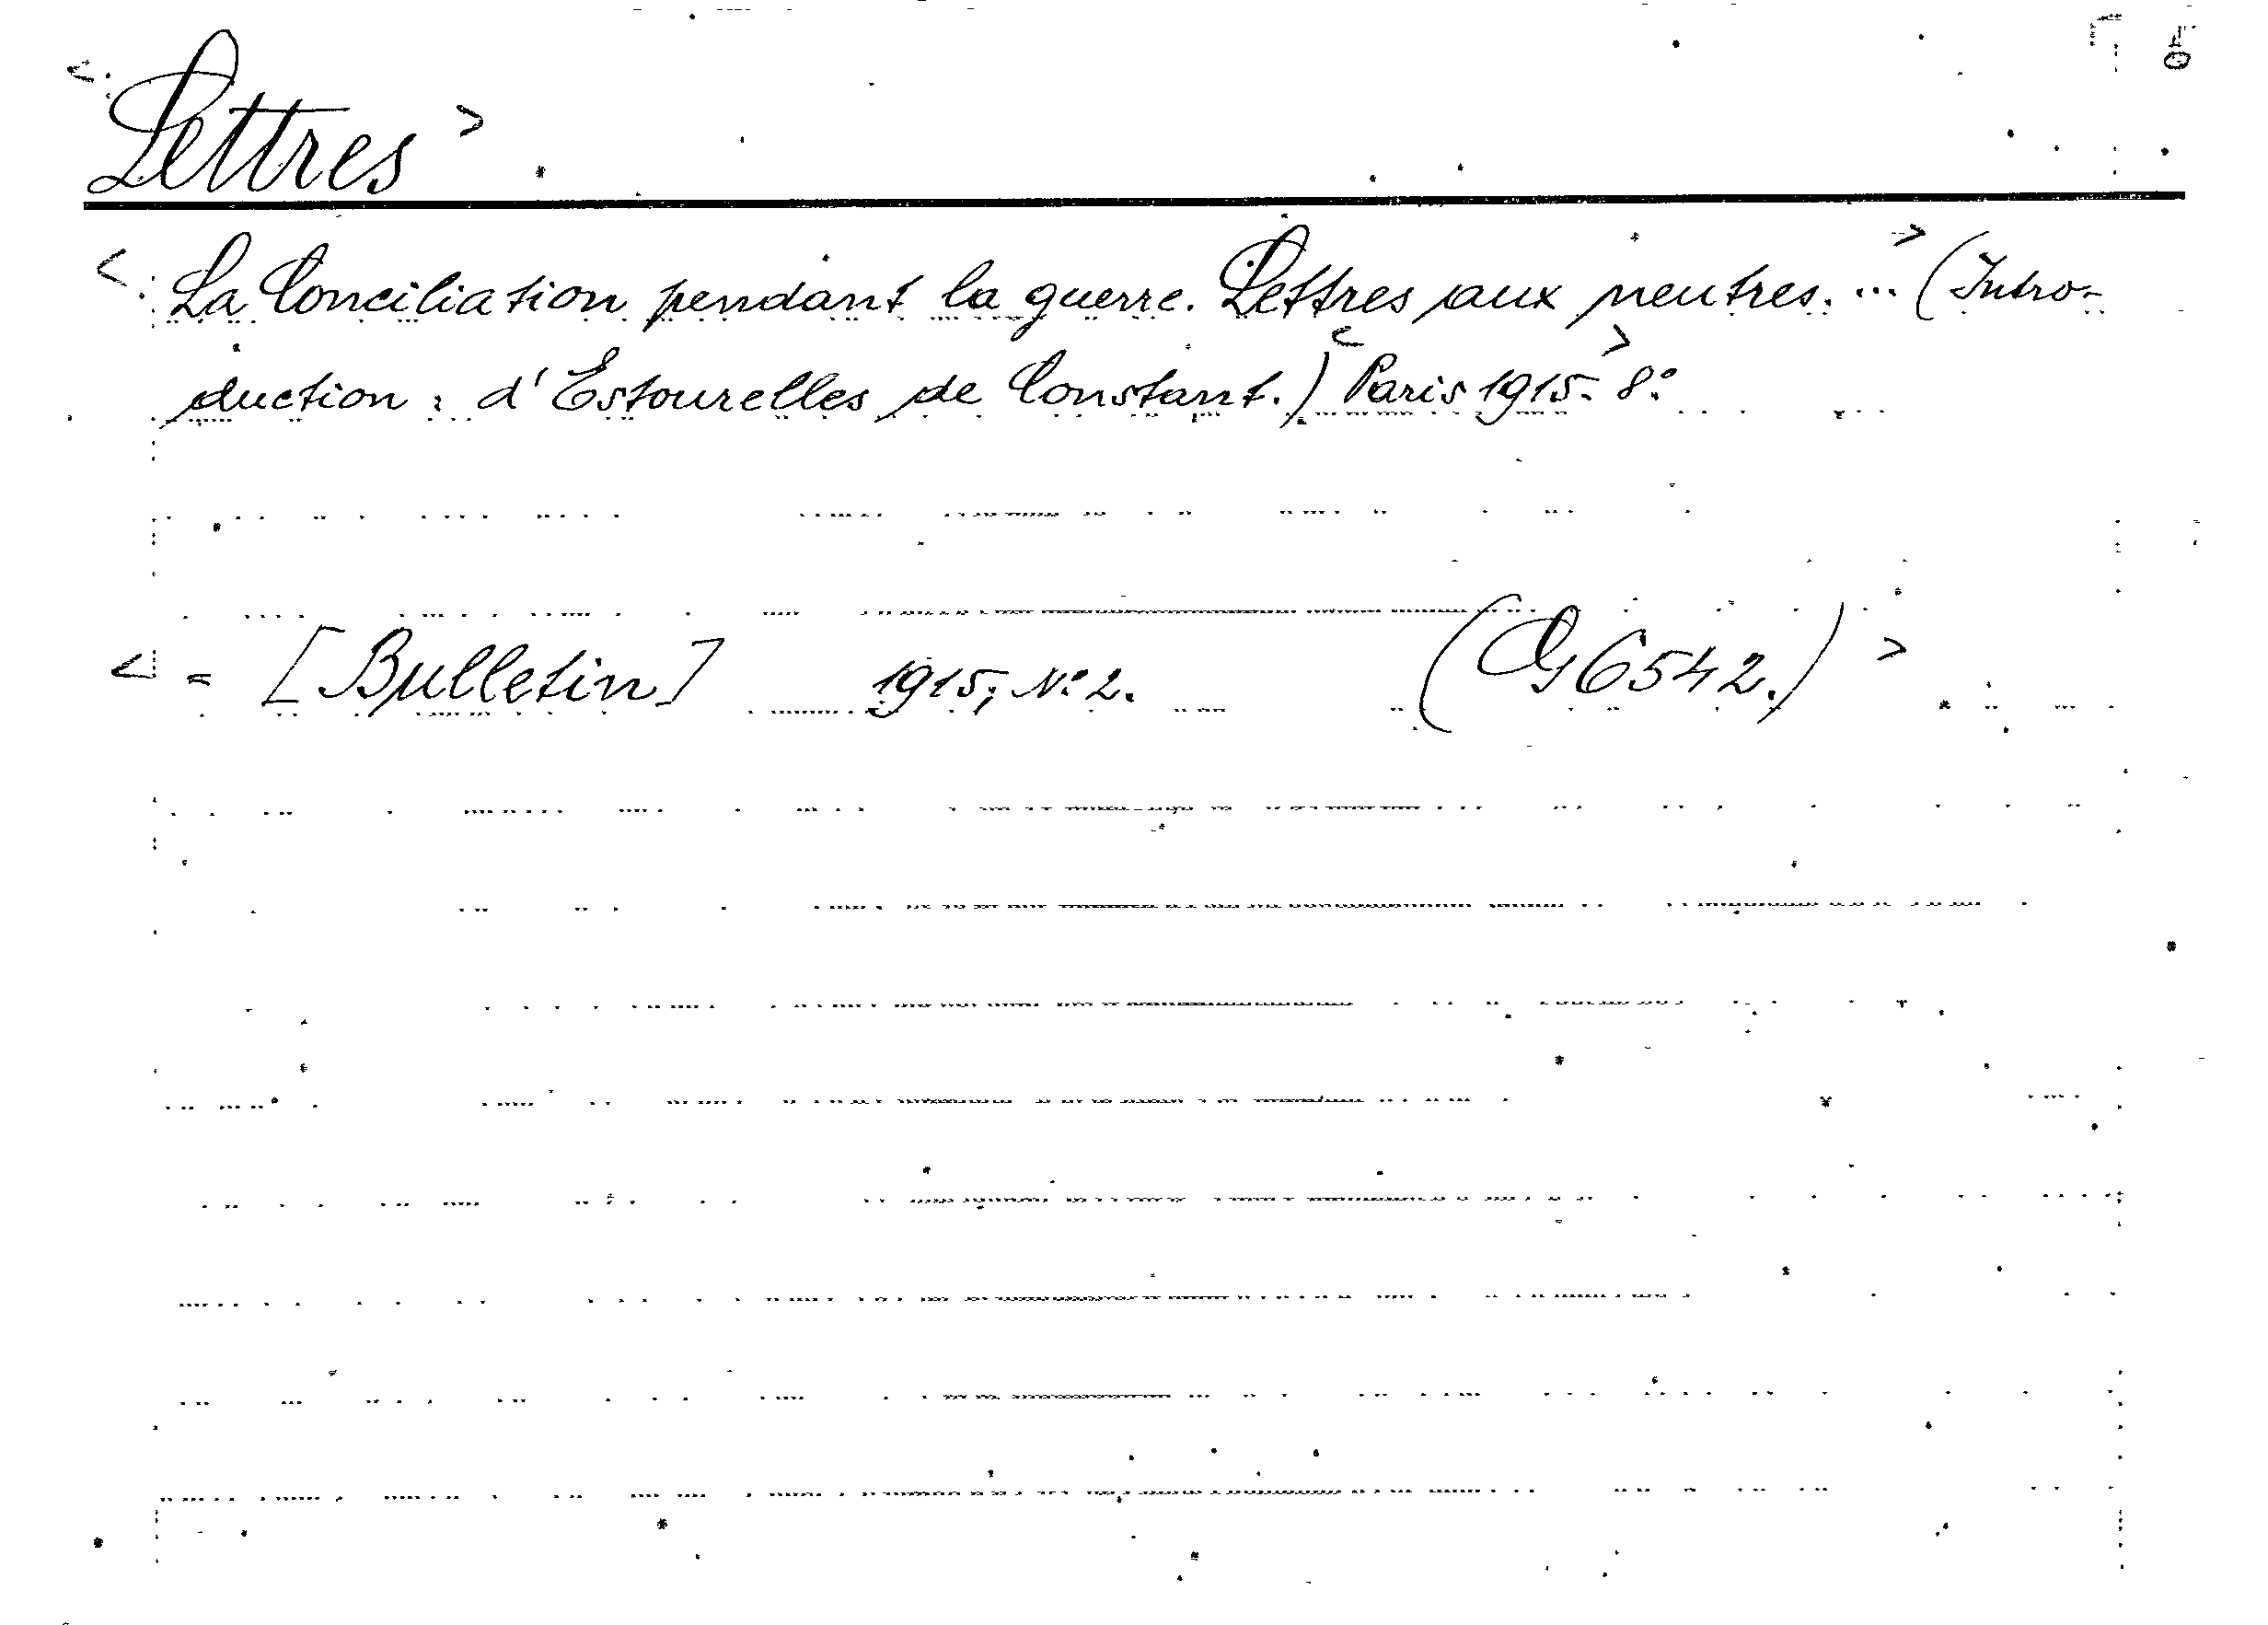 < Lettres >
< La Conciliation pendant la guerre. Lettres aux neutres. ... > (Intro-
duction : d'Estourelles de Constant.) < Paris 1915. > 8°.
< = [Bulletin] 1915, N° 2. (G 6542.) >